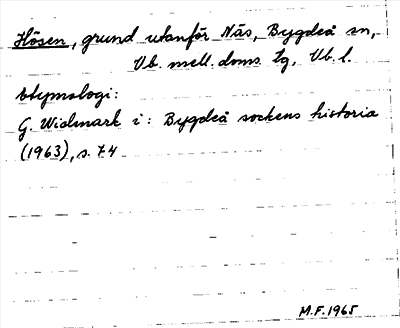 Hösen, grund utanför Näs, Bygdeå sn,
Vb. mell. doms. tg, Vb. l.
Etymologi:
G. Widmark i: Bygdeå sockens historia
(1963), s. 74
M.F. 1965